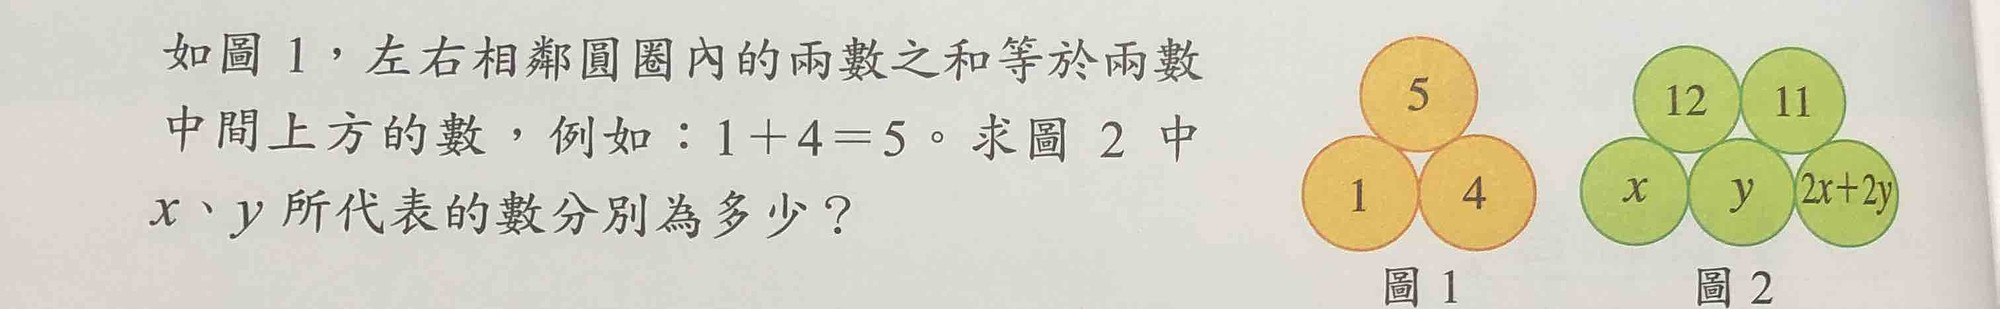 如圖 1，左右相鄰圓圈內的兩數之和等於兩數
中間上方的數，例如：1＋4＝5。求圖 2 中
x、y 所代表的數分別為多少？
5
1 4
圖 1
12 11
x y 2x+2y
圖 2